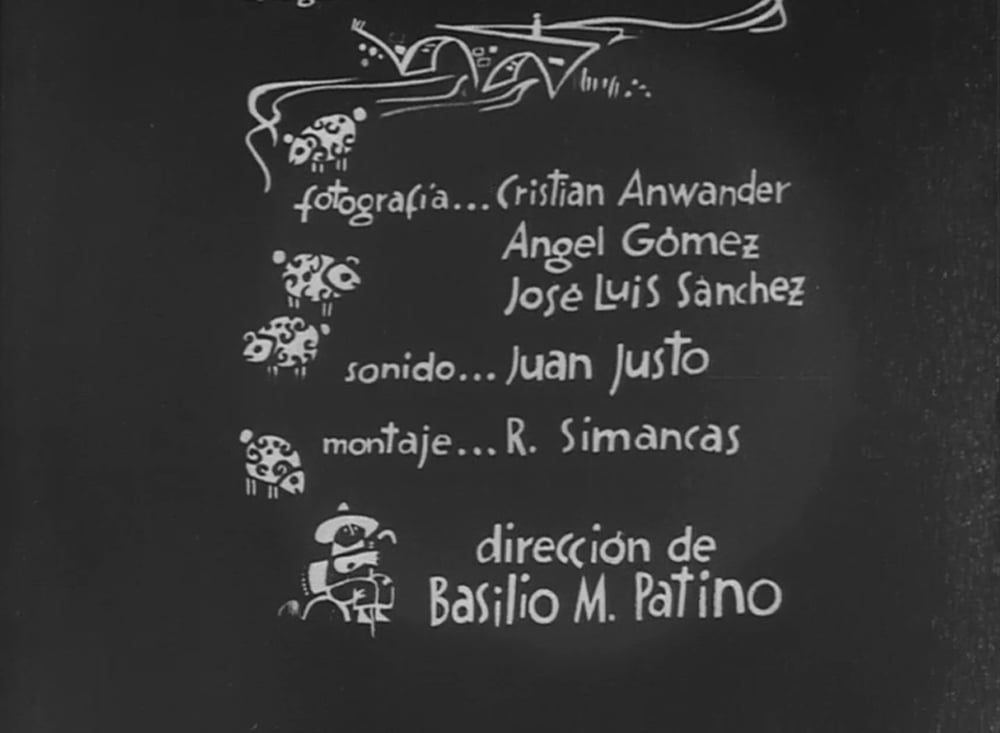 fotografía...Cristian Anwander
Angel Gómez
José Luis Sánchez
sonido...Juan Justo
montaje...R. Simancas
dirección de
Basilio M. Patino